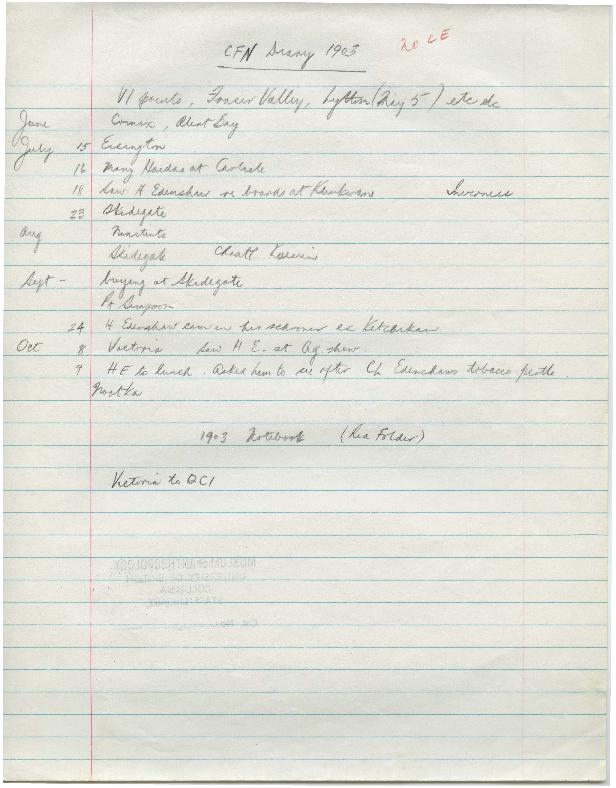 CFN Diary 1903 20 CE
VI points, Fraser Valley, Lytton (May 5) etc etc
June Comox, Alert Bay
July 15 Essington
16 many Haidas at Carlisle
18 Saw H Edenshaw re boards at Inverness
23 Skidegate
Aug Ninstints
Skidegate
Sept - buying at Skidegate
Pt Simpson
24 H Edenshaw came in his schooner ex Ketchikan
Oct 8 Victoria Saw H E. at Ag show
9 HE to lunch. Asked him to see after Ch Edenshaws tobacco
Nootka
1903 Notebook (Red Folder)
Victoria to QCI
MUSEUM OF ANTHROPOLOGY
UNIVERSITY OF BRITISH
COLUMBIA